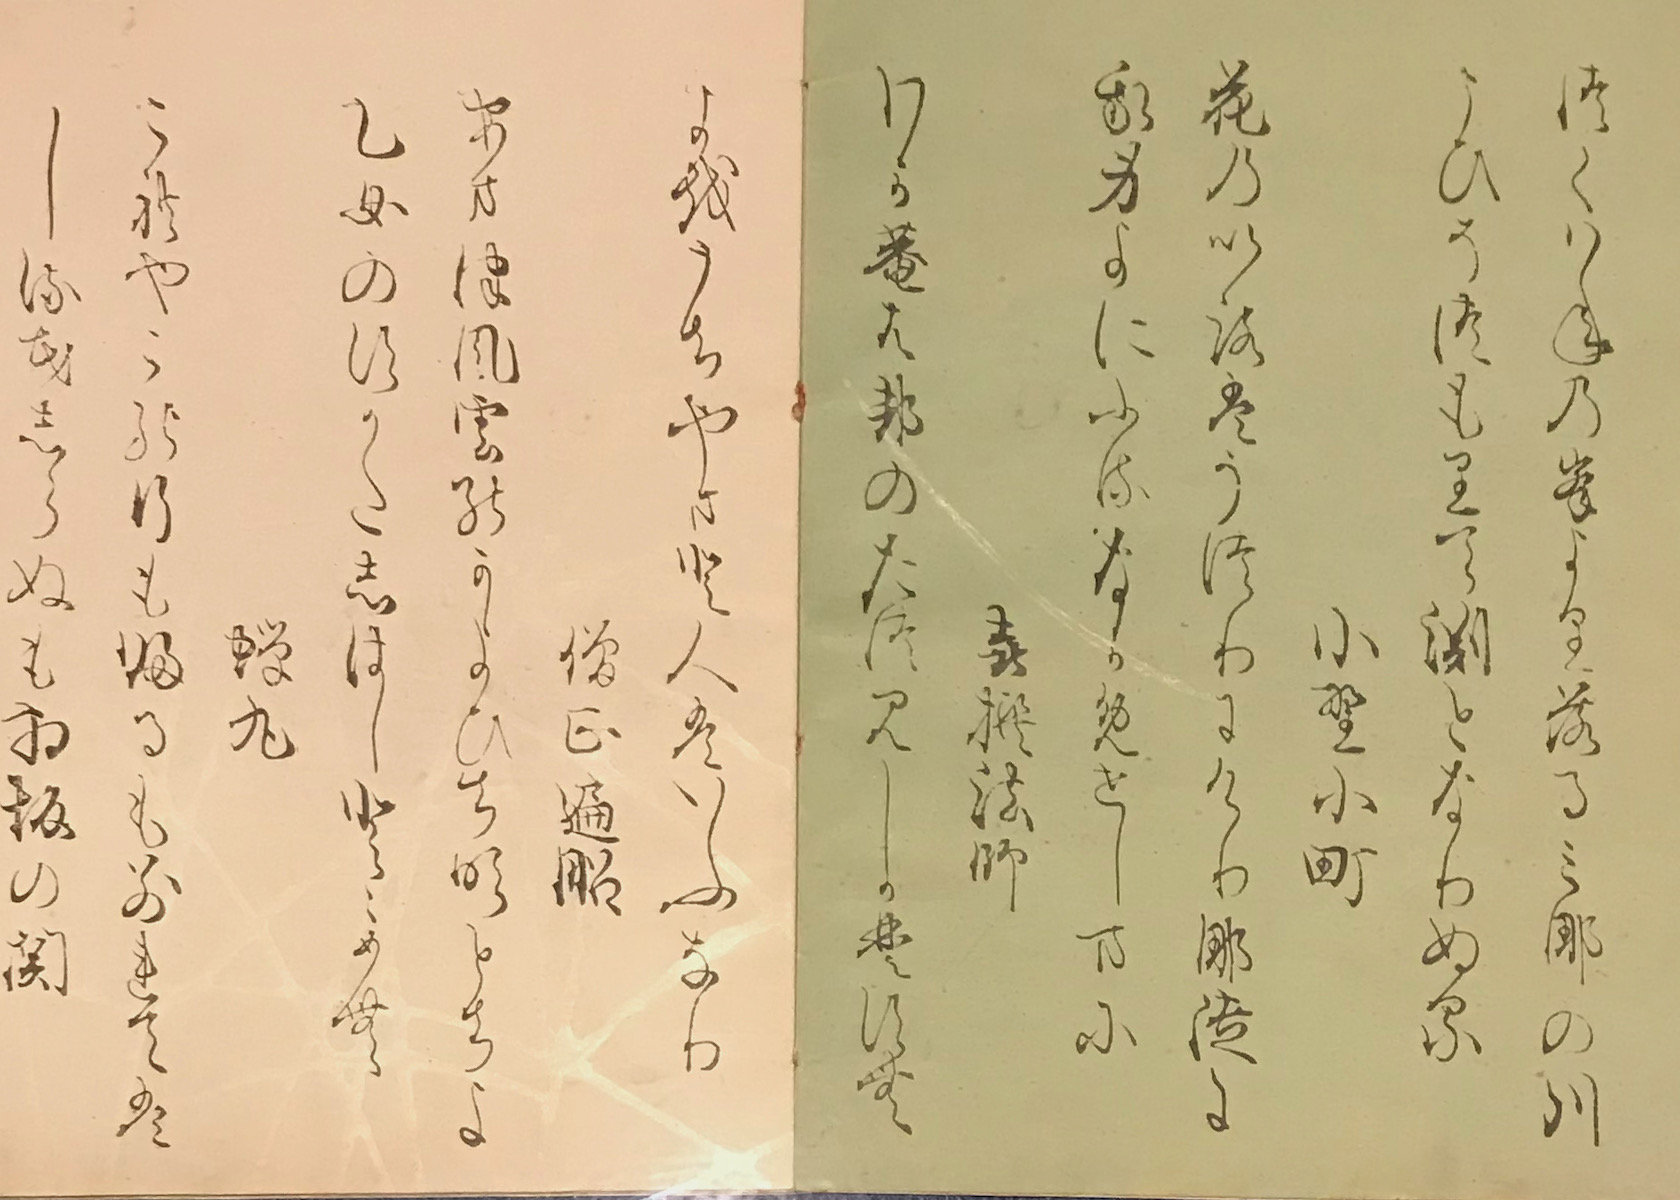 つくはねの峯より落るみなの川
こひそつもりて渕となりぬる
小野小町
花のいろはうつりにけりな徒に
我身よにふるなかめせしまに
喜撰法師
わか菴は都のたつみしかそすむ
よをうちやまと人はいふなり
僧正遍昭
あまつ風雲のかよひち吹とちよ
乙女のすかたしはしとゝめむ
蝉丸
これやこの行も帰るも別れては
しるもしらぬも相坂の関